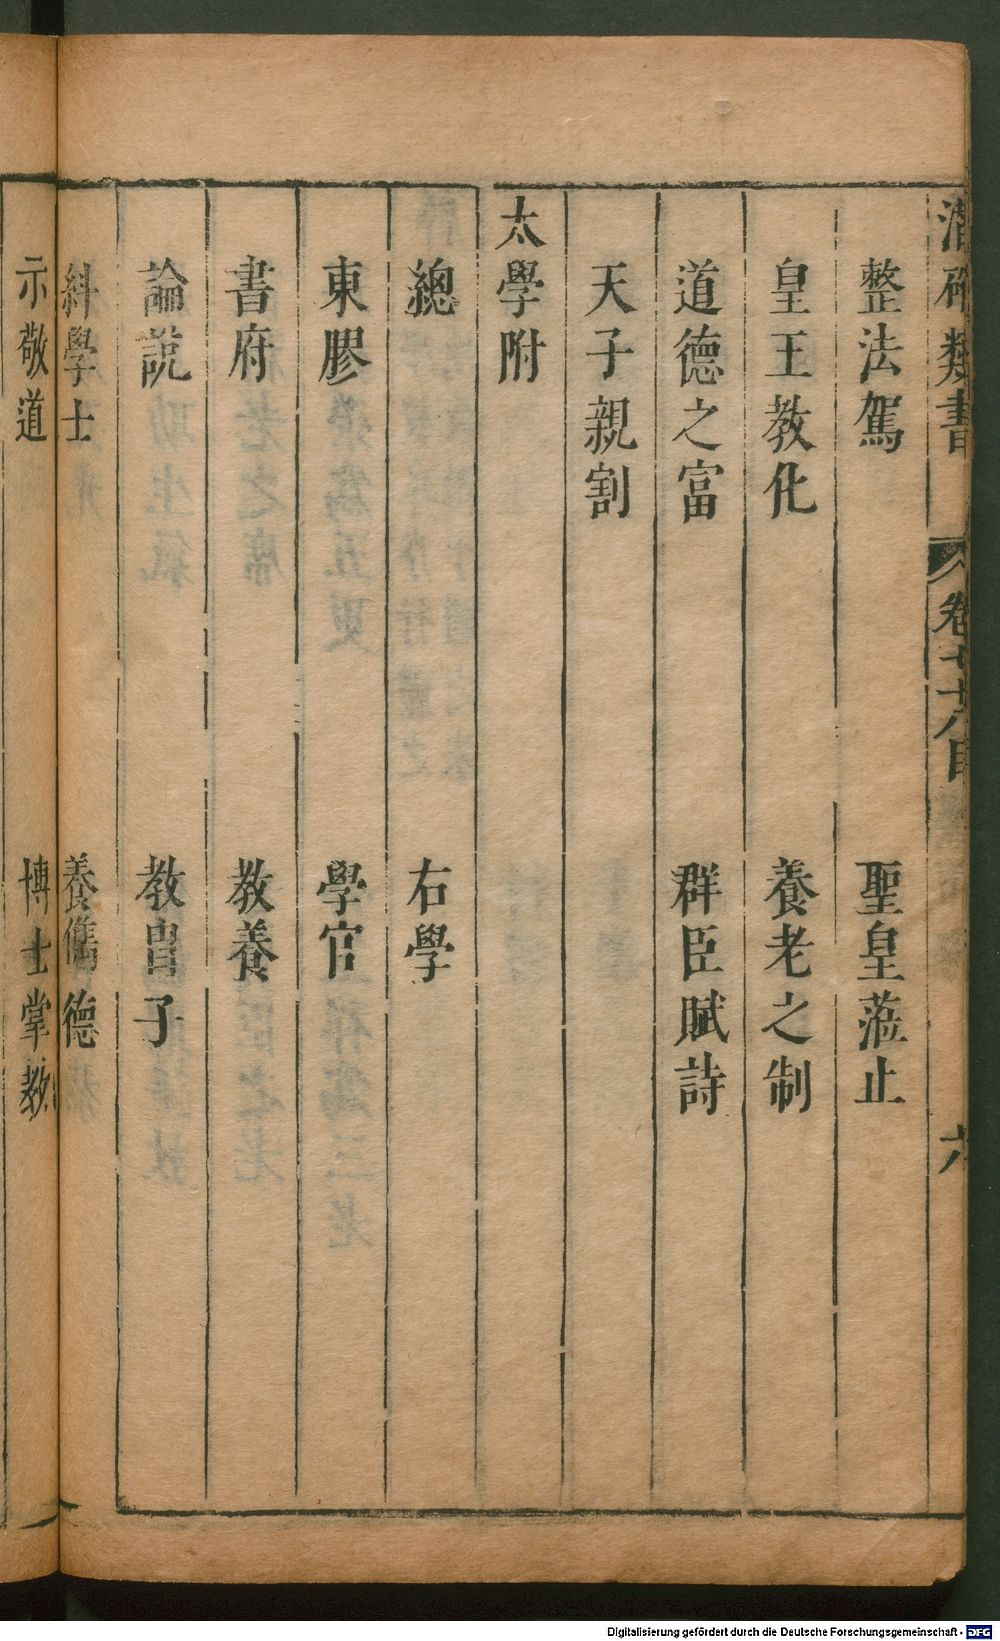 潛確類書 卷七十八目 六
整法駕 聖皇蒞止
皇王教化 養老之制
道德之富 群臣賦詩
天子親割
太學附
總 右學
東膠 學官
書府 教養
論說 教冑子
糾學士 養儁德
示敬道 博士掌教
Digitalisierung gefördert durch die Deutsche Forschungsgemeinschaft - DFG